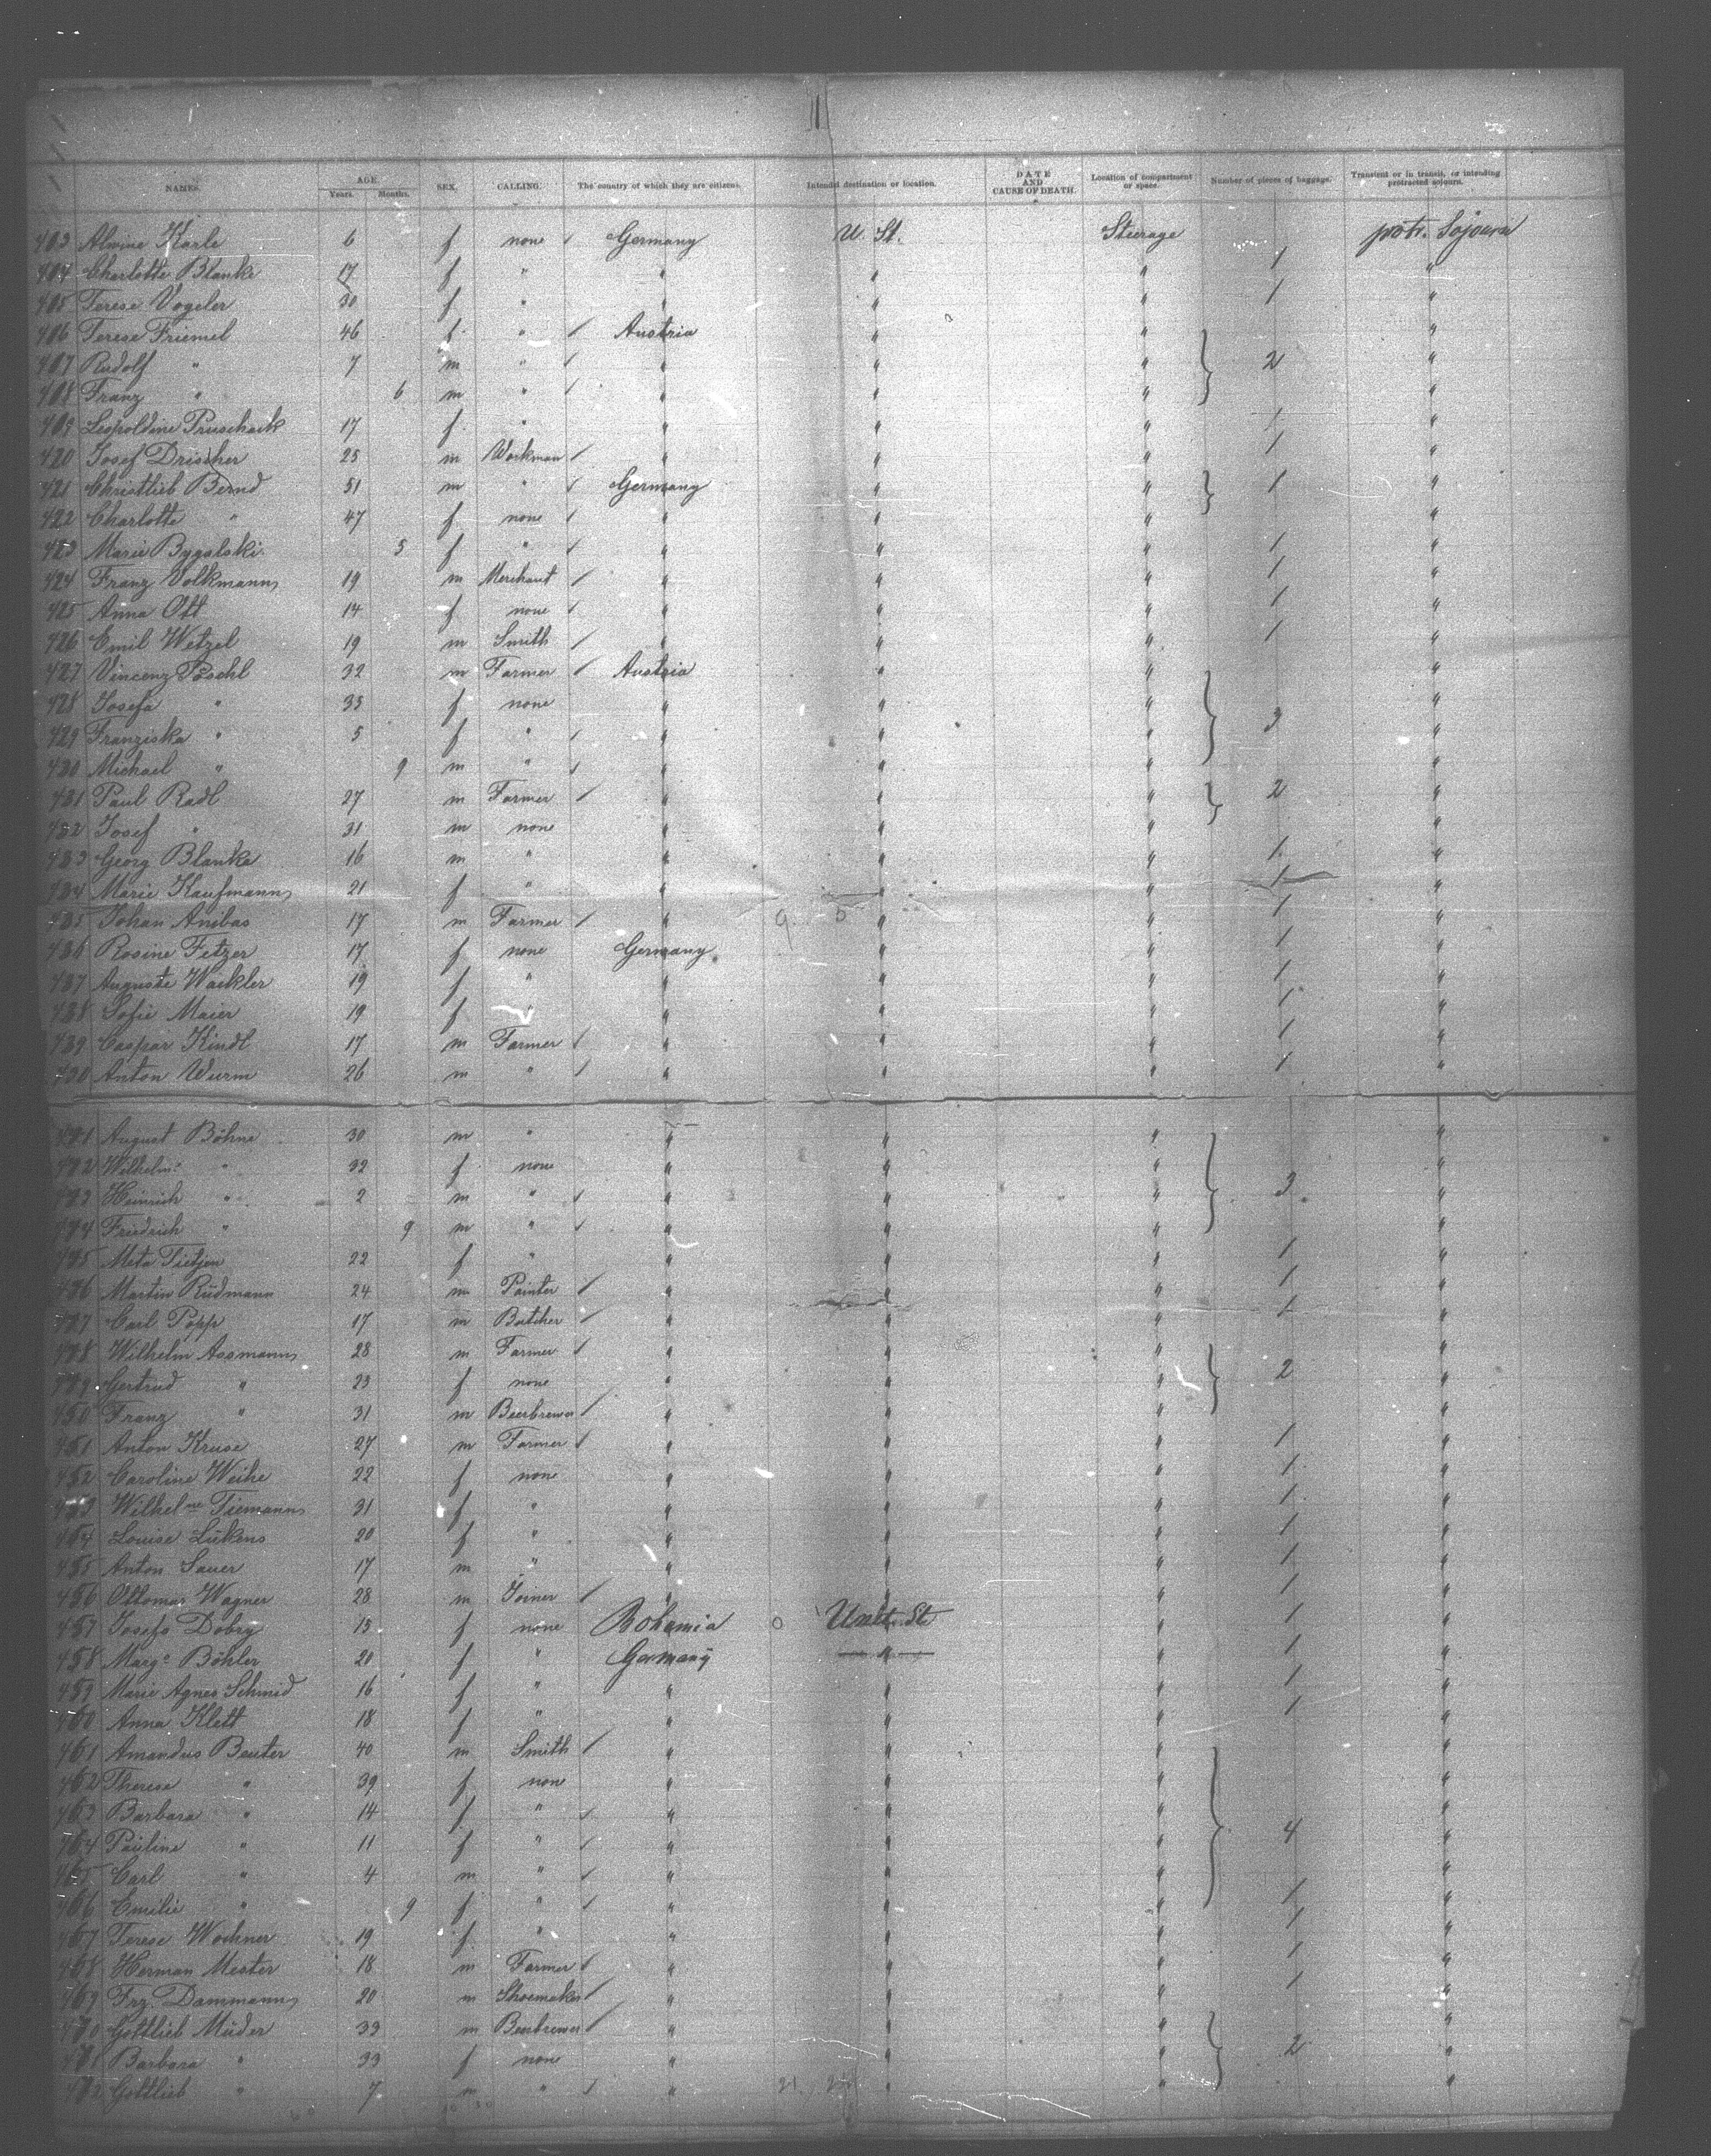 NAMES. AGE. Years. Months. SEX. CALLING. The country of which they are citizens. Intended destination or location. DATE AND CAUSE OF DEATH. Location of compartment or space. Number of pieces of baggage. Transient or in transit, or intending protracted sojourn.
403 Alwine Karle 6 f none Germany U. St. Steerage 1 protr. Sojourn
404 Charlotte Blanke 17 f " " " " 1 "
405 Terese Vogeler 30 f " " " " "
406 Terese Friemel 46 f " Austria " " "
407 Rudolf " 7 m " " " " 2 "
408 Franz " 6 m " " " " "
409 Leopoldine Pruschack 17 f " " " " 1 "
420 Josef Drischer 25 m Workman " " " 1 "
421 Christlieb Bernd 51 m " Germany " " 1 "
422 Charlotte " 47 f none " " " "
423 Marie Bygalski 5 f " " " " 1 "
424 Franz Volkmann 19 m Merchant " " " 1 "
425 Anna Ott 14 f none " " " 1 "
426 Emil Wetzel 19 m Smith " " " 1 "
427 Vincenz Poschl 32 m Farmer Austria " " "
428 Josefa " 33 f none " " " "
429 Franziska " 5 f " " " " 3 "
430 Michael " 9 m " " " " "
431 Paul Radl 27 m Farmer " " " 2 "
432 Josef " 31 m none " " " "
433 Georg Blanka 16 m " " " " 1 "
434 Marie Kaufmann 21 f " " " " 1 "
435 Johan Anibas 17 m Farmer " " " 1 "
436 Rosine Fetzer 17 f none Germany " " 1 "
437 Auguste Wackler 19 f " " " " 1 "
438 Sofie Maier 19 f " " " " 1 "
439 Caspar Kindl 17 m Farmer " " " 1 "
430 Anton Wurm 26 m " " " " 1 "
August Böhne 30 m " " " " "
Wilhelm " 32 f none " " " "
Heinrich " 2 m " " " " 3 "
Friedrich " 9 m " " " " "
Meta Tietjen 22 f " " " " 1 "
Martin Rüdmann 24 m Painter " " " 1 "
Carl Popp 17 m Butcher " " " 1 "
Wilhelm Assmann 28 m Farmer " " " "
Gertrud " 23 f none " " " 2 "
450 Franz " 31 m Beerbrewer " " " "
451 Anton Kruse 27 m Farmer " " " 1 "
452 Caroline Weihe 22 f none " " " 1 "
453 Wilhelne Tiemann 31 f " " " " 1 "
454 Louise Lükens 20 f " " " " 1 "
455 Anton Sauer 17 m " " " " 1 "
456 Ottomar Wagner 28 m Joiner " " " 1 "
457 Josefa Dobry 15 f none Bohemia Unit. St. " 1 "
458 Marge Böhler 20 f " Germany " " 1 "
459 Marie Agnes Schmid 16 f " " " " 1 "
460 Anna Klett 18 f " " " " 1 "
461 Amandus Beuter 40 m Smith " " " "
462 Therese " 39 f none " " " "
463 Barbara " 14 f " " " " "
464 Pauline " 11 f " " " " 4 "
465 Carl " 4 m " " " " "
466 Emilie " 9 f " " " " 1 "
467 Terese Wochner 19 f " " " " 1 "
468 Herman Mester 18 m Farmer " " " 1 "
469 Frz. Dammann 20 m Shoemaker " " " 1 "
470 Gottlieb Müder 33 m Beerbrewer " " " "
471 Barbara " 33 f none " " " 2 "
472 Gottlieb " 7 m " " " " "